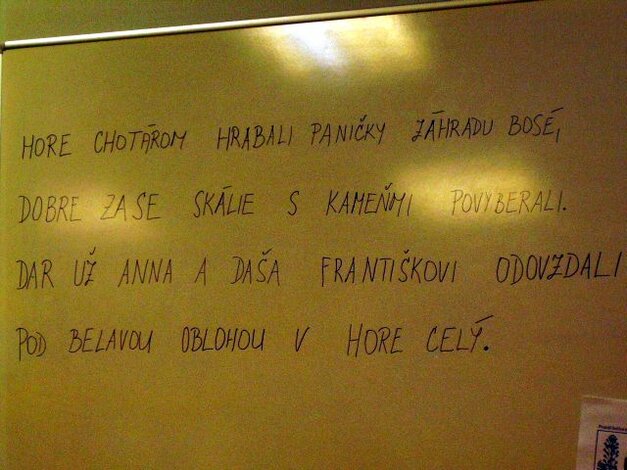 HORE CHOTÁROM HRABALI PANIČKY ZÁHRADU BOSÉ,
DOBRE ZASE SKÁLIE S KAMEŇMI POVYBERALI.
DAR UŽ ANNA A DAŠA FRANTIŠKOVI ODOVZDALI
POD BELAVOU OBLOHOU V HORE CELÝ.